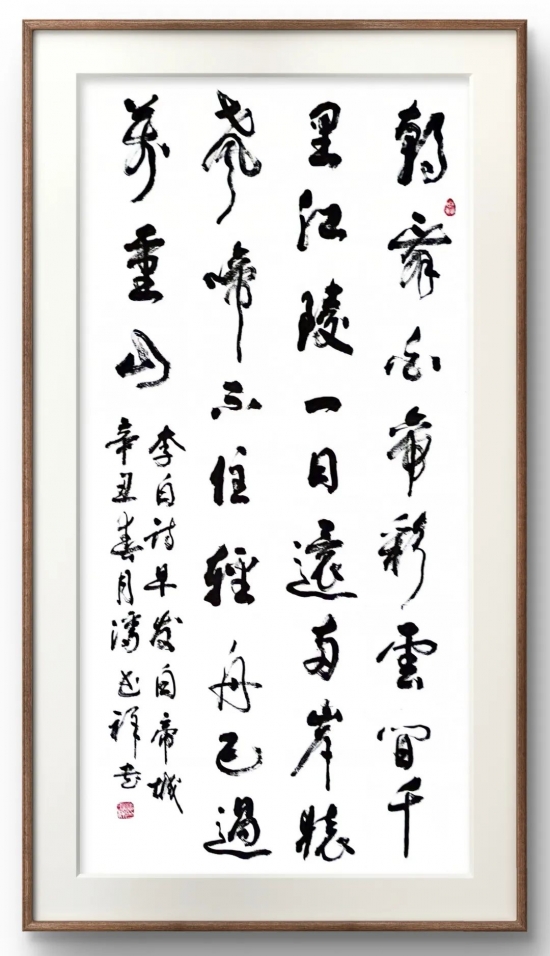 朝辞白帝彩雲間千
里江陵一日還兩岸猿
聲啼不住輕舟已過
萬重山
李白詩早發白帝城
辛丑春月潘祥書